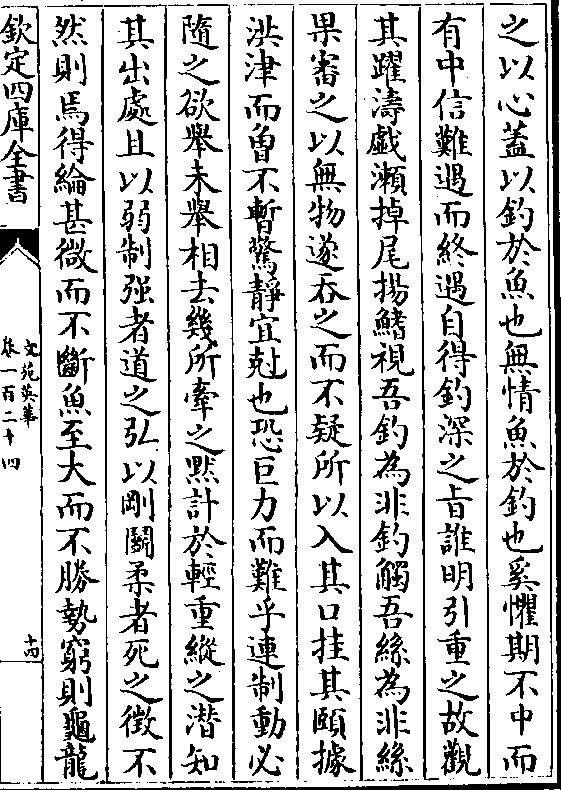 之以心蓋以釣於魚也無情魚於釣也奚懼期不中而
有中信難遇而終遇自得釣深之旨誰明引重之故觀
其躍濤戯瀬掉尾揚鰭視吾釣為非釣觸吾絲為非絲
果審之以無物遂吞之而不疑所以入其口挂其頤據
洪津而曽不暫驚靜宜尅也恐巨力而難乎連制動必
隨之欲舉未舉相去幾所牽之黙計於輕重縱之潜知
其出處且以弱制强者道之弘以剛鬭柔者死之徴不
然則焉得綸甚微而不斷魚至大而不勝勢窮則龜龍
欽定四庫全書
文苑英華
卷一百二十四
十四